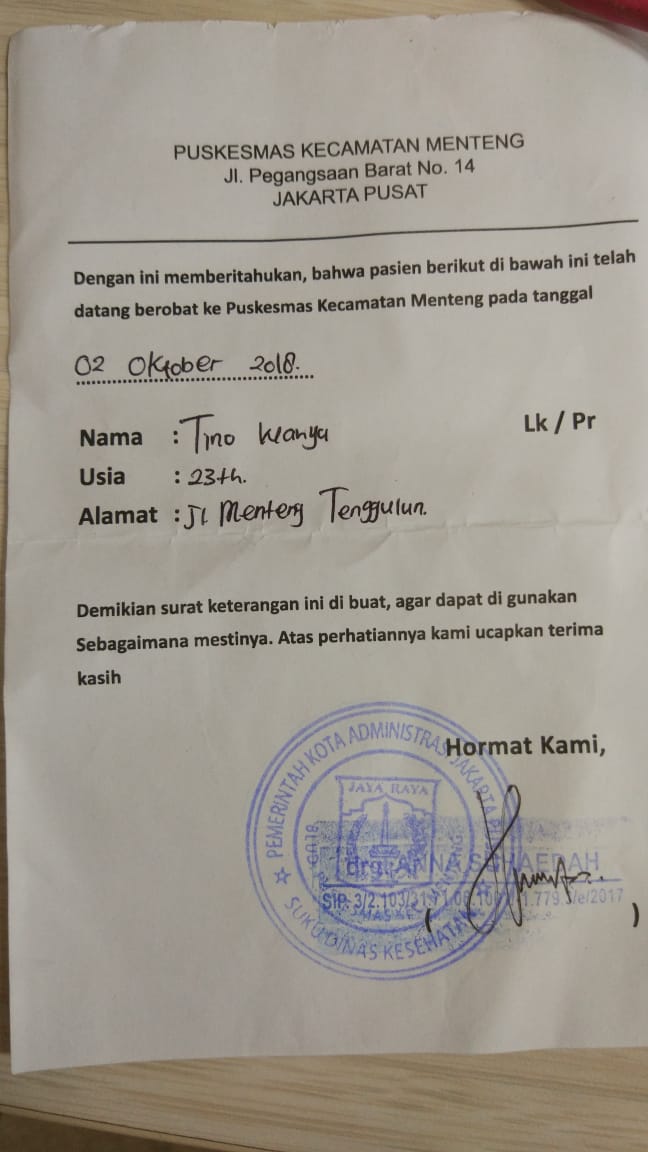 PUSKESMAS KECAMATAN MENTENG
Jl. Pegangsaan Barat No. 14
JAKARTA PUSAT
Dengan ini memberitahukan, bahwa pasien berikut di bawah ini telah
datang berobat ke Puskesmas Kecamatan Menteng pada tanggal
02 Oktober 2018.
Nama : Tino Lk / Pr
Usia : 23th.
Alamat : Jl. Menteng Tenggulun.
Demikian surat keterangan ini di buat, agar dapat di gunakan
Sebagaimana mestinya. Atas perhatiannya kami ucapkan terima
kasih
Hormat Kami,
PEMERINTAH KOTA ADMINISTRASI JAKARTA
JAYA RAYA
drg. ANNA
SIP. 3/2.103/31.71.06.
779. /e/2017
SUKU DINAS KESEHATAN
( )